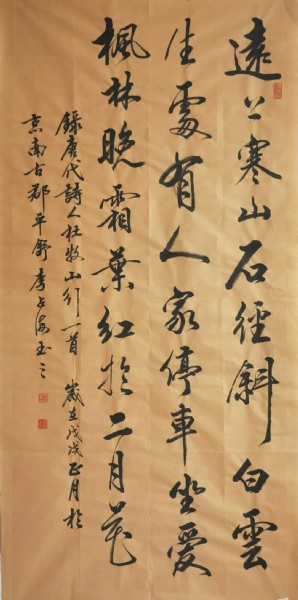 遠上寒山石徑斜白雲
生處有人家停車坐愛
楓林晚霜葉紅於二月花
錄唐代詩人杜牧山行一首 歲在戊戌正月於
京南古郡平舒李占海書